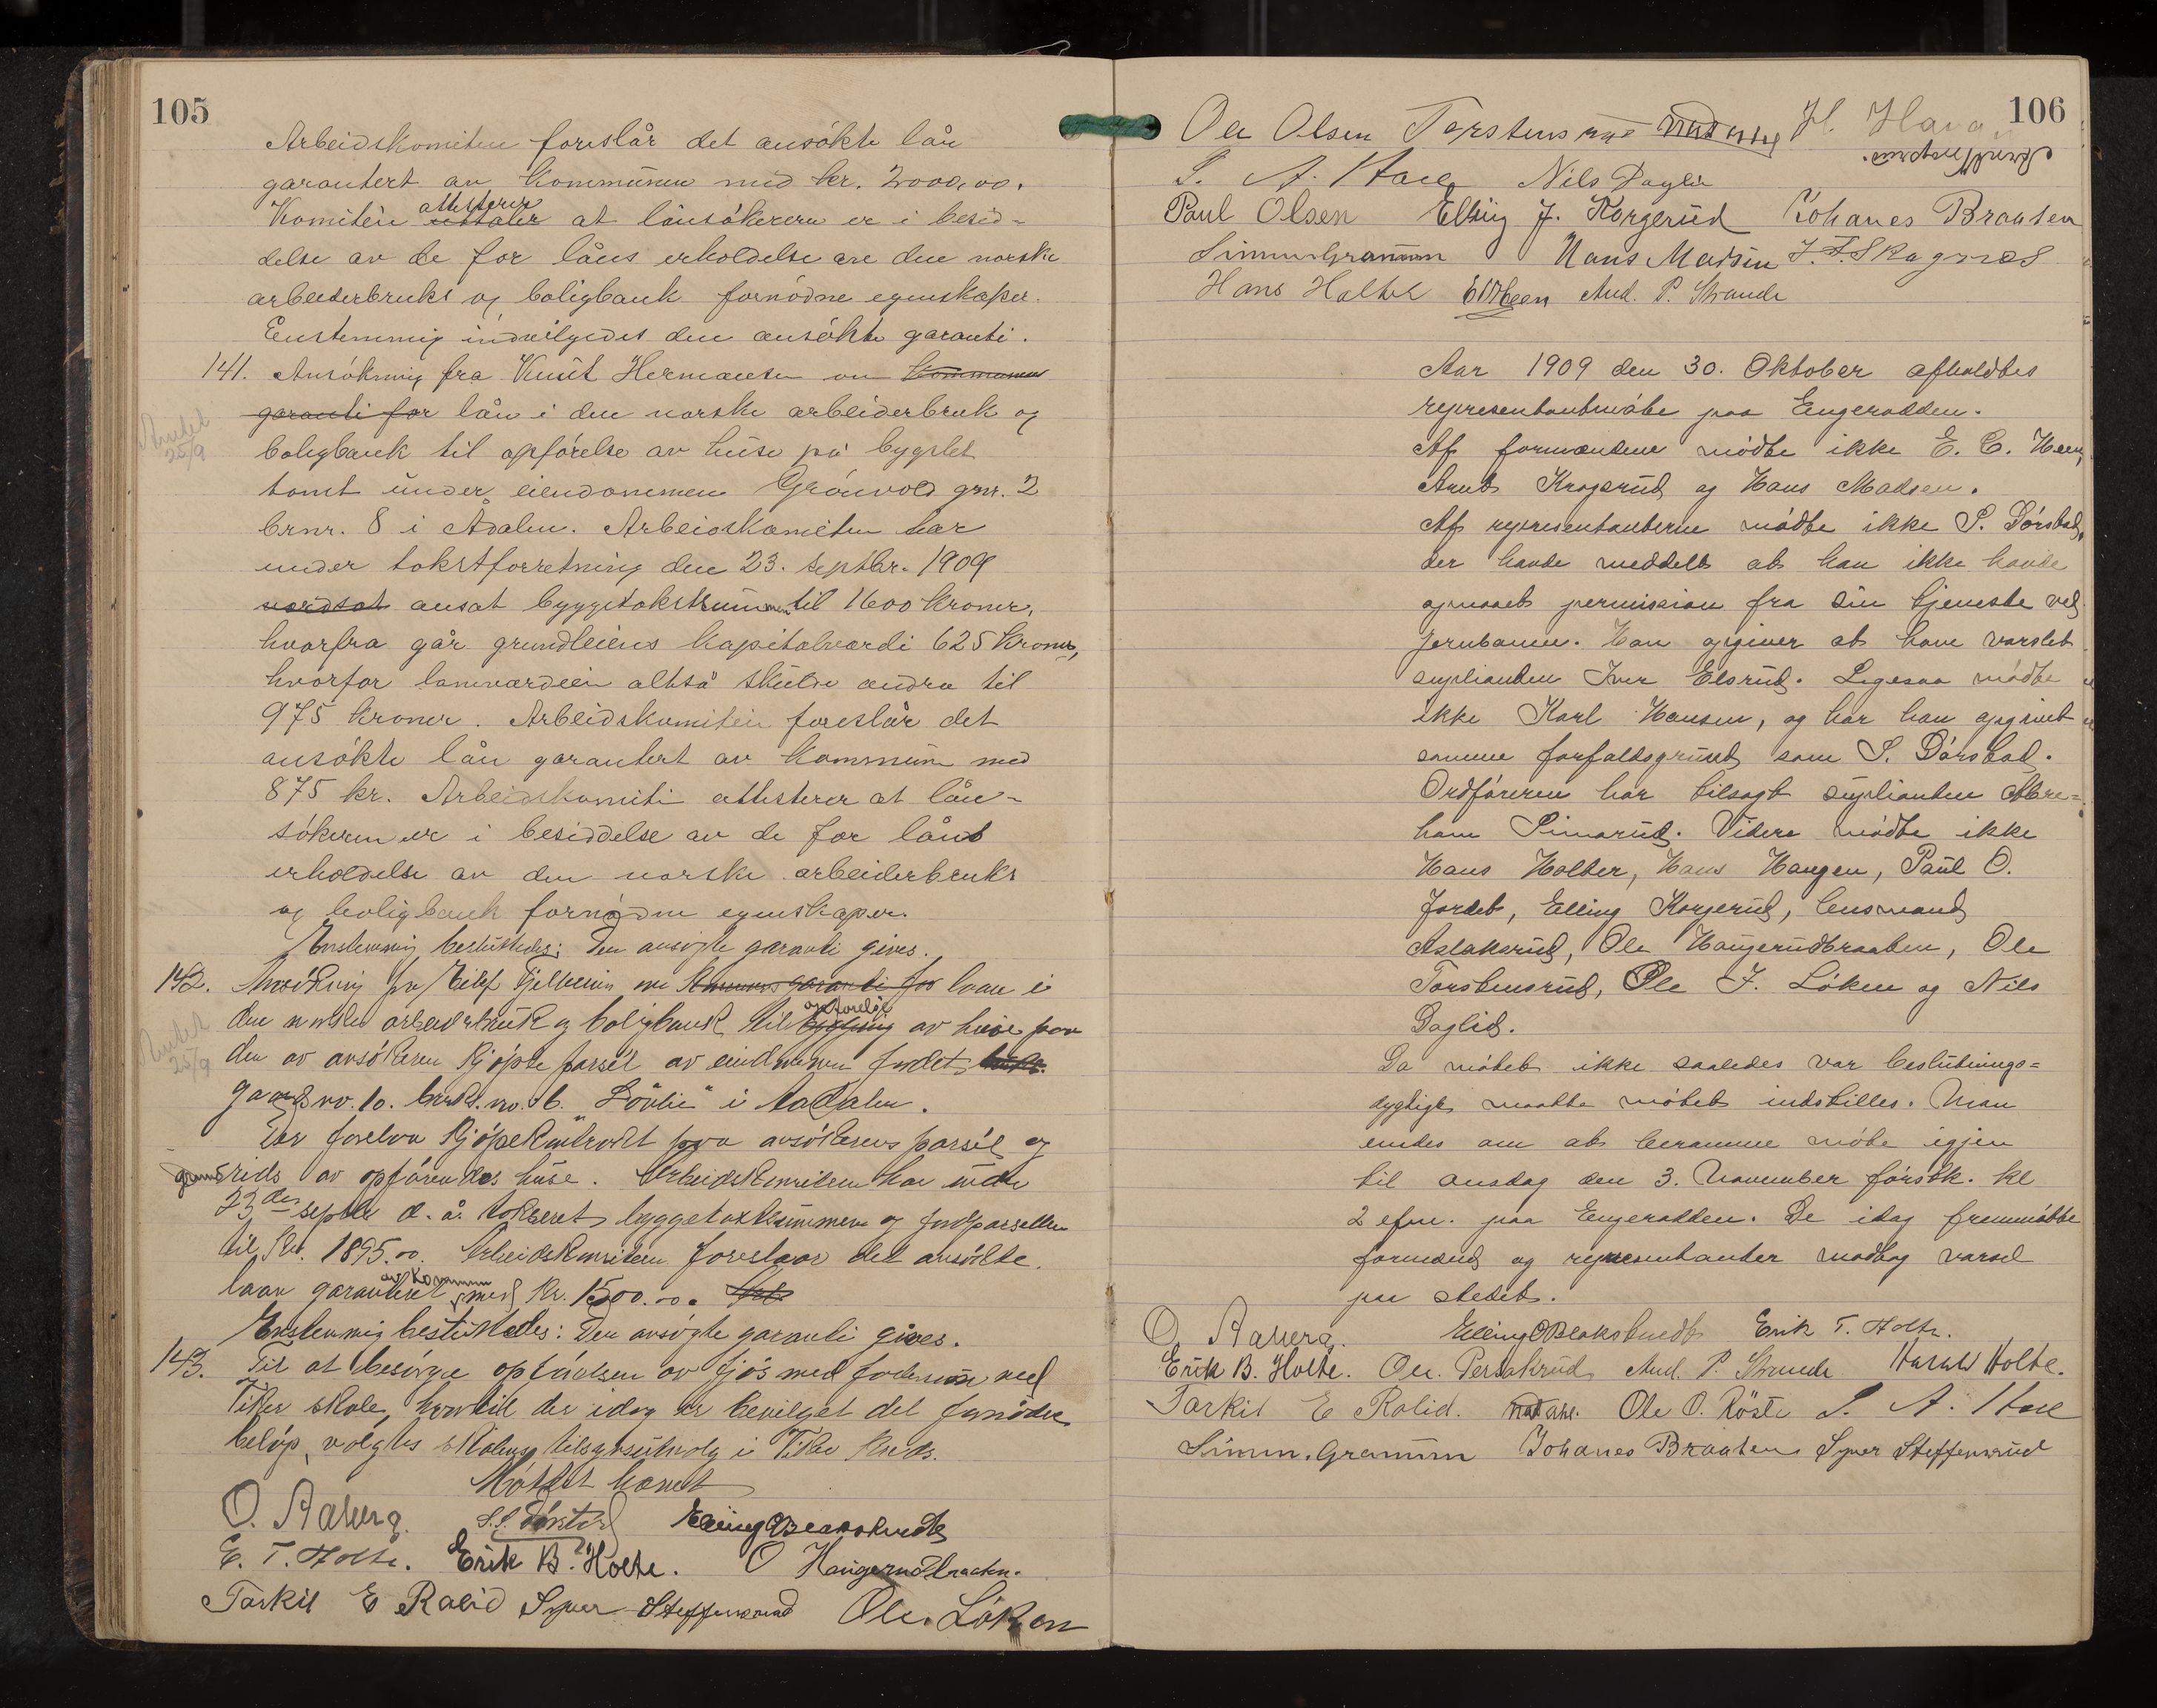 105
Arbeidskomiteen foreslår det ansökte lån
garantert av kommunen med kr. 2000,00.
Komiteen uttaler attesterer at lånsökeren er i besid-
delse av de for låns erholdelse av den norske
arbeiderbruk og boligbank fornödne egenskaper.
Enstemmig indvilgedes den ansökte garanti.
141. Ansökning fra Knut Hermansen om kommunens
garanti for lån i den norske arbeiderbruk og
Anket
25/9
boligbank til opförelse av huse på bygslet
tomt under eiendommen Grönvold gnr. 2
brnr. 8 i Ådalen. Arbeidskomiteen har
under takstforretning den 23. septbr. 1909
verdsat ansat byggetakstsummen til 1600 kroner,
hvorfra går grundleiens kapitalværdi 625 kroner,
hvorfor lånværdien altså skulde andra til
975 kroner. Arbeidskomiteen foreslår det
ansökte lån garantert av kommunen med
875 kr. Arbeidskomiteen attesterer at lån-
sökeren er i besiddelse av de for låns
erholdelse av den norske arbeiderbruk
og boligbank fornödne egenskaper.
Enstemmig besluttedes: Den ansögte garanti gives.
142. Ansökning fra Eilif Fjelheim om kommunens garanti for laan i
den norske arbeiderbruk og boligbank til bygging opförelse av huse paa
25/9
den av ansökeren kjöpte parsel av eiendommen Jordet
gaards no. 10. bruks. no. 16. "Lövlie" i Aadalen.
Der forelaa kjöpekontrakt paa ansökerens parsel og
grundrids av opförendes huse. Arbeidskomiteen har under
23des septbr d. å. takseret byggetakstsummen og jordparsellen
til Kr. 1895.00. Arbeidskomiteen foreslaar det ansökte
laan garanteret av kommunen med kr. 1500.00.
Enstemmig besluttedes: Den ansögte garanti gives.
143. Til at besörge opförelsen av fjös med foderrum ved
Viker skole, hvortil der idag er bevilget det fornödne
belöp, valgtes skolens tilsynsutvalg i Viker kreds.
Mötet hævet
O. Aaberg. S. P. Dörstad Elling O Blakstvedt
E. T. Holte. Erik B. Holte. O Haugerudbraaten.
Tarkil E Ralid Syver Steffensrud Ole. Löken
106
Ole Olsen Torstensrud H. Haugen
S. A. Hove Nils Daglid
Paul Olsen Elling J. Korgerud Johanes Braaten
Simen Granum Hans Madsen J. F. Skagnæs
Hans Holter E C Heen And. P. Strande
Aar 1909 den 30. Oktober afholdtes
representantmöte paa Engerodden.
Af formændene mödte ikke E. C. Heen,
Arnt Krogsrud og Hans Madsen.
Af representanterne mödte ikke S. Dörstad,
der havde meddelt at han ikke havde
opnaaet permission fra sin tjeneste ved
jernbanen. Han opgiver at have varslet
suplianten Iver Elsrud. Ligesaa mödte
ikke Karl Hansen, og har han opgivet
samme forfaldsgrund som S. Dörstad.
Ordföreren har tilsagt suplianten Abra-
ham Simarud. Videre mödte ikke
Hans Holter, Hans Haugen, Paul O.
Jordet, Elling Korgerud, lensmand
Aslaksrud, Ole Haugerudbraaten, Ole
Torstensrud, Ole J. Löken og Nils
Daglid.
Da mötet ikke saaledes var beslutnings-
dygtigt maatte mötet indstilles. Man
enedes om at beramme möte igjen
til onsdag den 3. November förstk. kl
2 efm. paa Engerodden. De idag fremmötte
formænd og representanter modtog varsel
paa stedet.
O. Aaberg. Elling O Blakstvedt Erik T. Holte.
Erik B. Holte. Ole. Persakrud And. P. Strande Harald Holte.
Tarkil E Ralid. Ole O. Röste S. A. Hove
Simen. Granum Johanes Braaten Syver Steffensrud